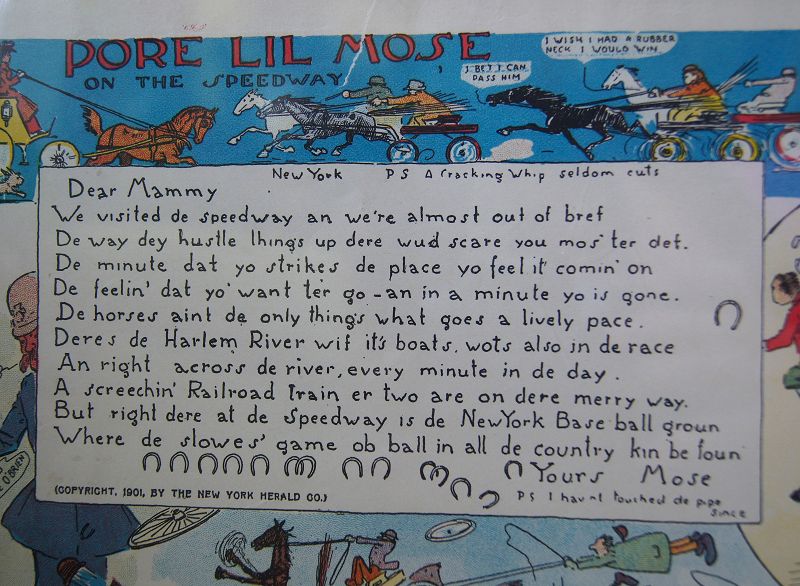 PORE LIL MOSE,
ON THE SPEEDWAY
I BET I CAN
PASS HIM
I WISH I HAD A RUBBER
NECK I WOULD WIN
New York P S A Cracking Whip seldom cuts
Dear Mammy
We visited de speedway an we're almost out of bref
De way dey hustle things up dere wud scare you mos' ter def.
De minute dat yo strikes de place yo feel it' comin' on
De feelin' dat yo' want ter go - an in a minute yo is gone.
De horses aint de only thing's what goes a lively pace.
Deres de Harlem River wif it's boats, wots also in de race
An right across de river, every minute in de day.
A screechin' Railroad Train er two are on dere merry way.
But right dere at de Speedway is de New York Base ball groun
Where de slowes' game ob ball in all de country kin be foun
Yours Mose
(COPYRIGHT, 1901, BY THE NEW YORK HERALD CO.)
P S I havnt touched de pipe
since
O'BRIEN